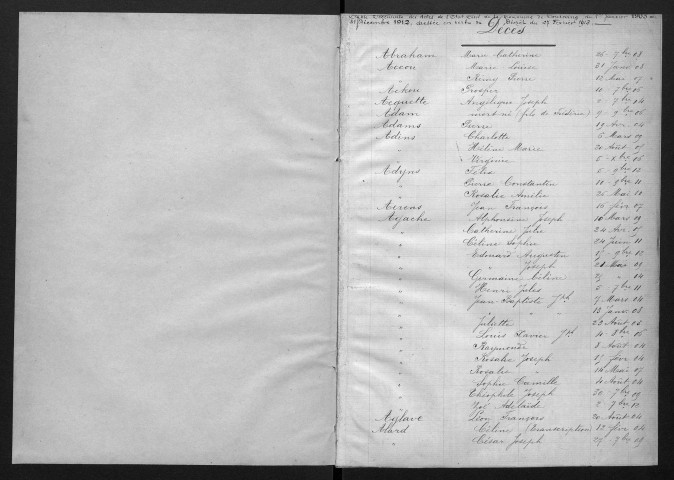 Table Décennale des Actes de l'Etat Civil de la Commune de Tourcoing du 1er Janvier 1903 au
31 Décembre 1912, dressée en vertu du Décret du 27 Février
Décès
Abraham Marie Catherine 26 7bre 03
Accou Marie Louise 21 Janv 03
" Rémy Pierre 12 Mai 07
Prosper 10 7bre 05
Acquette Angélique Joseph 04
Adam mort-né (fils de
Adams Pierre 19 Avr 04
Adins Charlotte 5 Mars 09
Hélène Marie 20 Août 07
Virginie 5 Xbre 05
Adyns Félix 5 9bre 12
" Pierre Constantin 10 9bre 11
" Rosalie Amélie 25 Mai 10
Aerens Jean François 16 févr 07
Agache Alphonsine Joseph 16 Mars 09
" Catherine Julie 24 Avr
" Céline Sophie 24 Juin 11
" Edouard Augustin
" " Joseph
" Germaine Céline 14
" Henri Jules 5 7bre 11
" Jean-Baptiste Jph 7 Mars 04
" " " 13 Janv 08
" Juliette 22 Août 05
" Louis Xavier Jph 4 8bre 06
" Raymonde 8 Août 04
" Rosalie Joseph 17 févr 04
" Rosalie " 14 Mai 07
" Sophie Camille 4 Août 04
" Théophile Joseph 20 7bre 09
" Zoé Adélaïde 2 7bre 12
Aglave Léon François 20 Août 04
Alard Céline (Transcription) 12 févr 04
" César Joseph 27 7bre 09